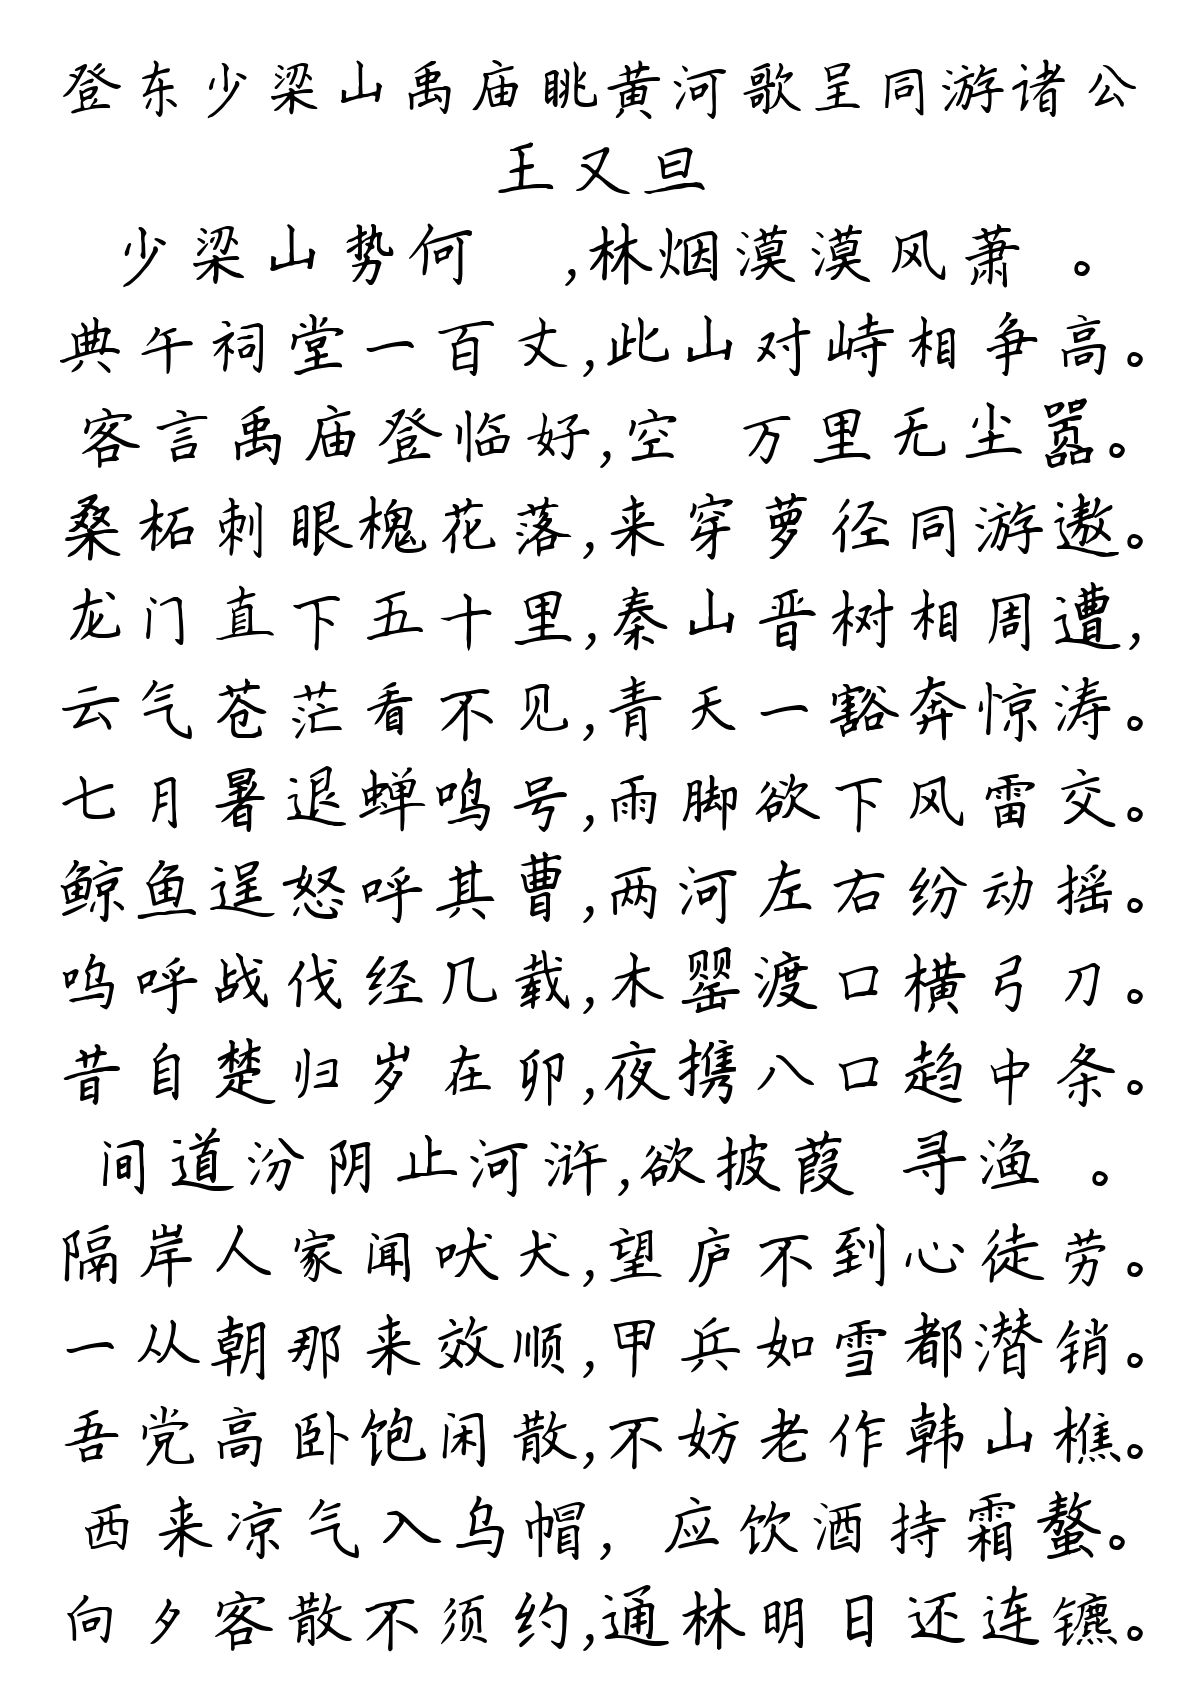 登东少梁山禹庙眺黄河歌呈同游诸公
王又旦
少梁山势何 ,林烟漠漠风萧 。
典午祠堂一百丈,此山对峙相争高。
客言禹庙登临好,空 万里无尘嚣。
桑柘刺眼槐花落,来穿萝径同游遨。
龙门直下五十里,秦山晋树相周遭,
云气苍茫看不见,青天一豁奔惊涛。
七月暑退蝉鸣号,雨脚欲下风雷交。
鲸鱼逞怒呼其曹,两河左右纷动摇。
呜呼战伐经几载,木罂渡口横弓刀。
昔自楚归岁在卯,夜携八口趋中条。
间道汾阴止河浒,欲披葭 寻渔 。
隔岸人家闻吠犬,望庐不到心徒劳。
一从朝那来效顺,甲兵如雪都潜销。
吾党高卧饱闲散,不妨老作韩山樵。
西来凉气入乌帽，应饮酒持霜螯。
向夕客散不须约,通林明日还连镳。